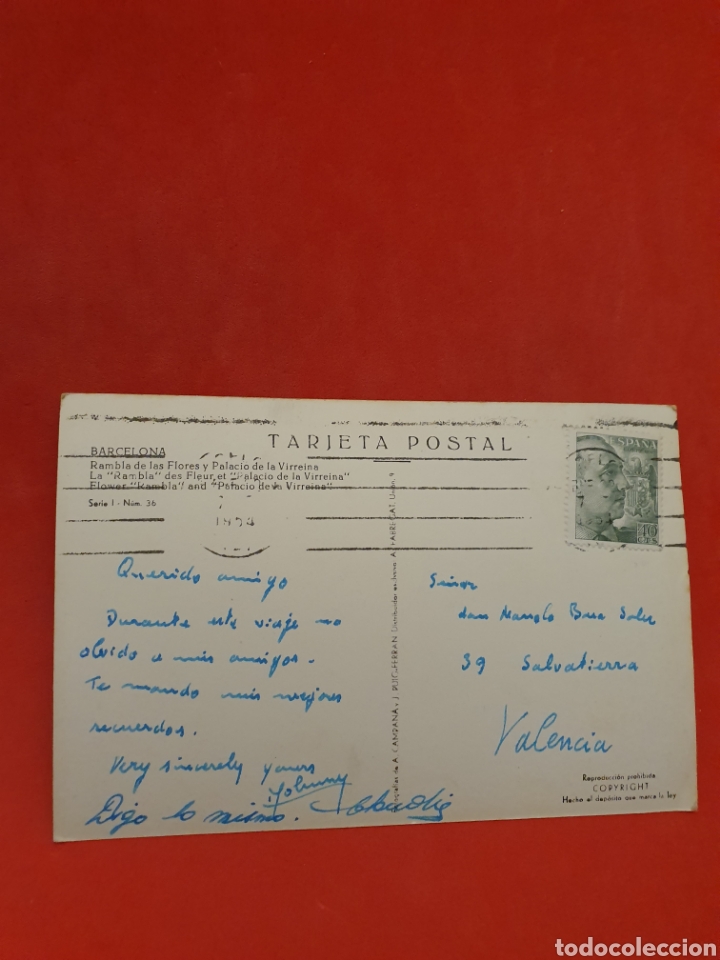 TARJETA POSTAL
BARCELONA
Rambla de las Flores y Palacio de la Virreina
La "Rambla" des Fleur et "Palacio de la Virreina"
Flower "Rambla" and "Palacio de la Virreina"
Serie I - Núm. 36
ESPAÑA
40
CTS
Querido amigo
Durante este viaje no
olvido a mis amigos.
Te mando mis mejores
recuerdos.
Very sincerely yours
Johnny
Digo lo mismo.
Señor
don Manolo
39 Salvatierra
Valencia
de A. CAMPAÑA y J. PUIG-FERRAN
Reproducción prohibida
COPYRIGHT
Hecho el depósito que marca la ley
todocoleccion